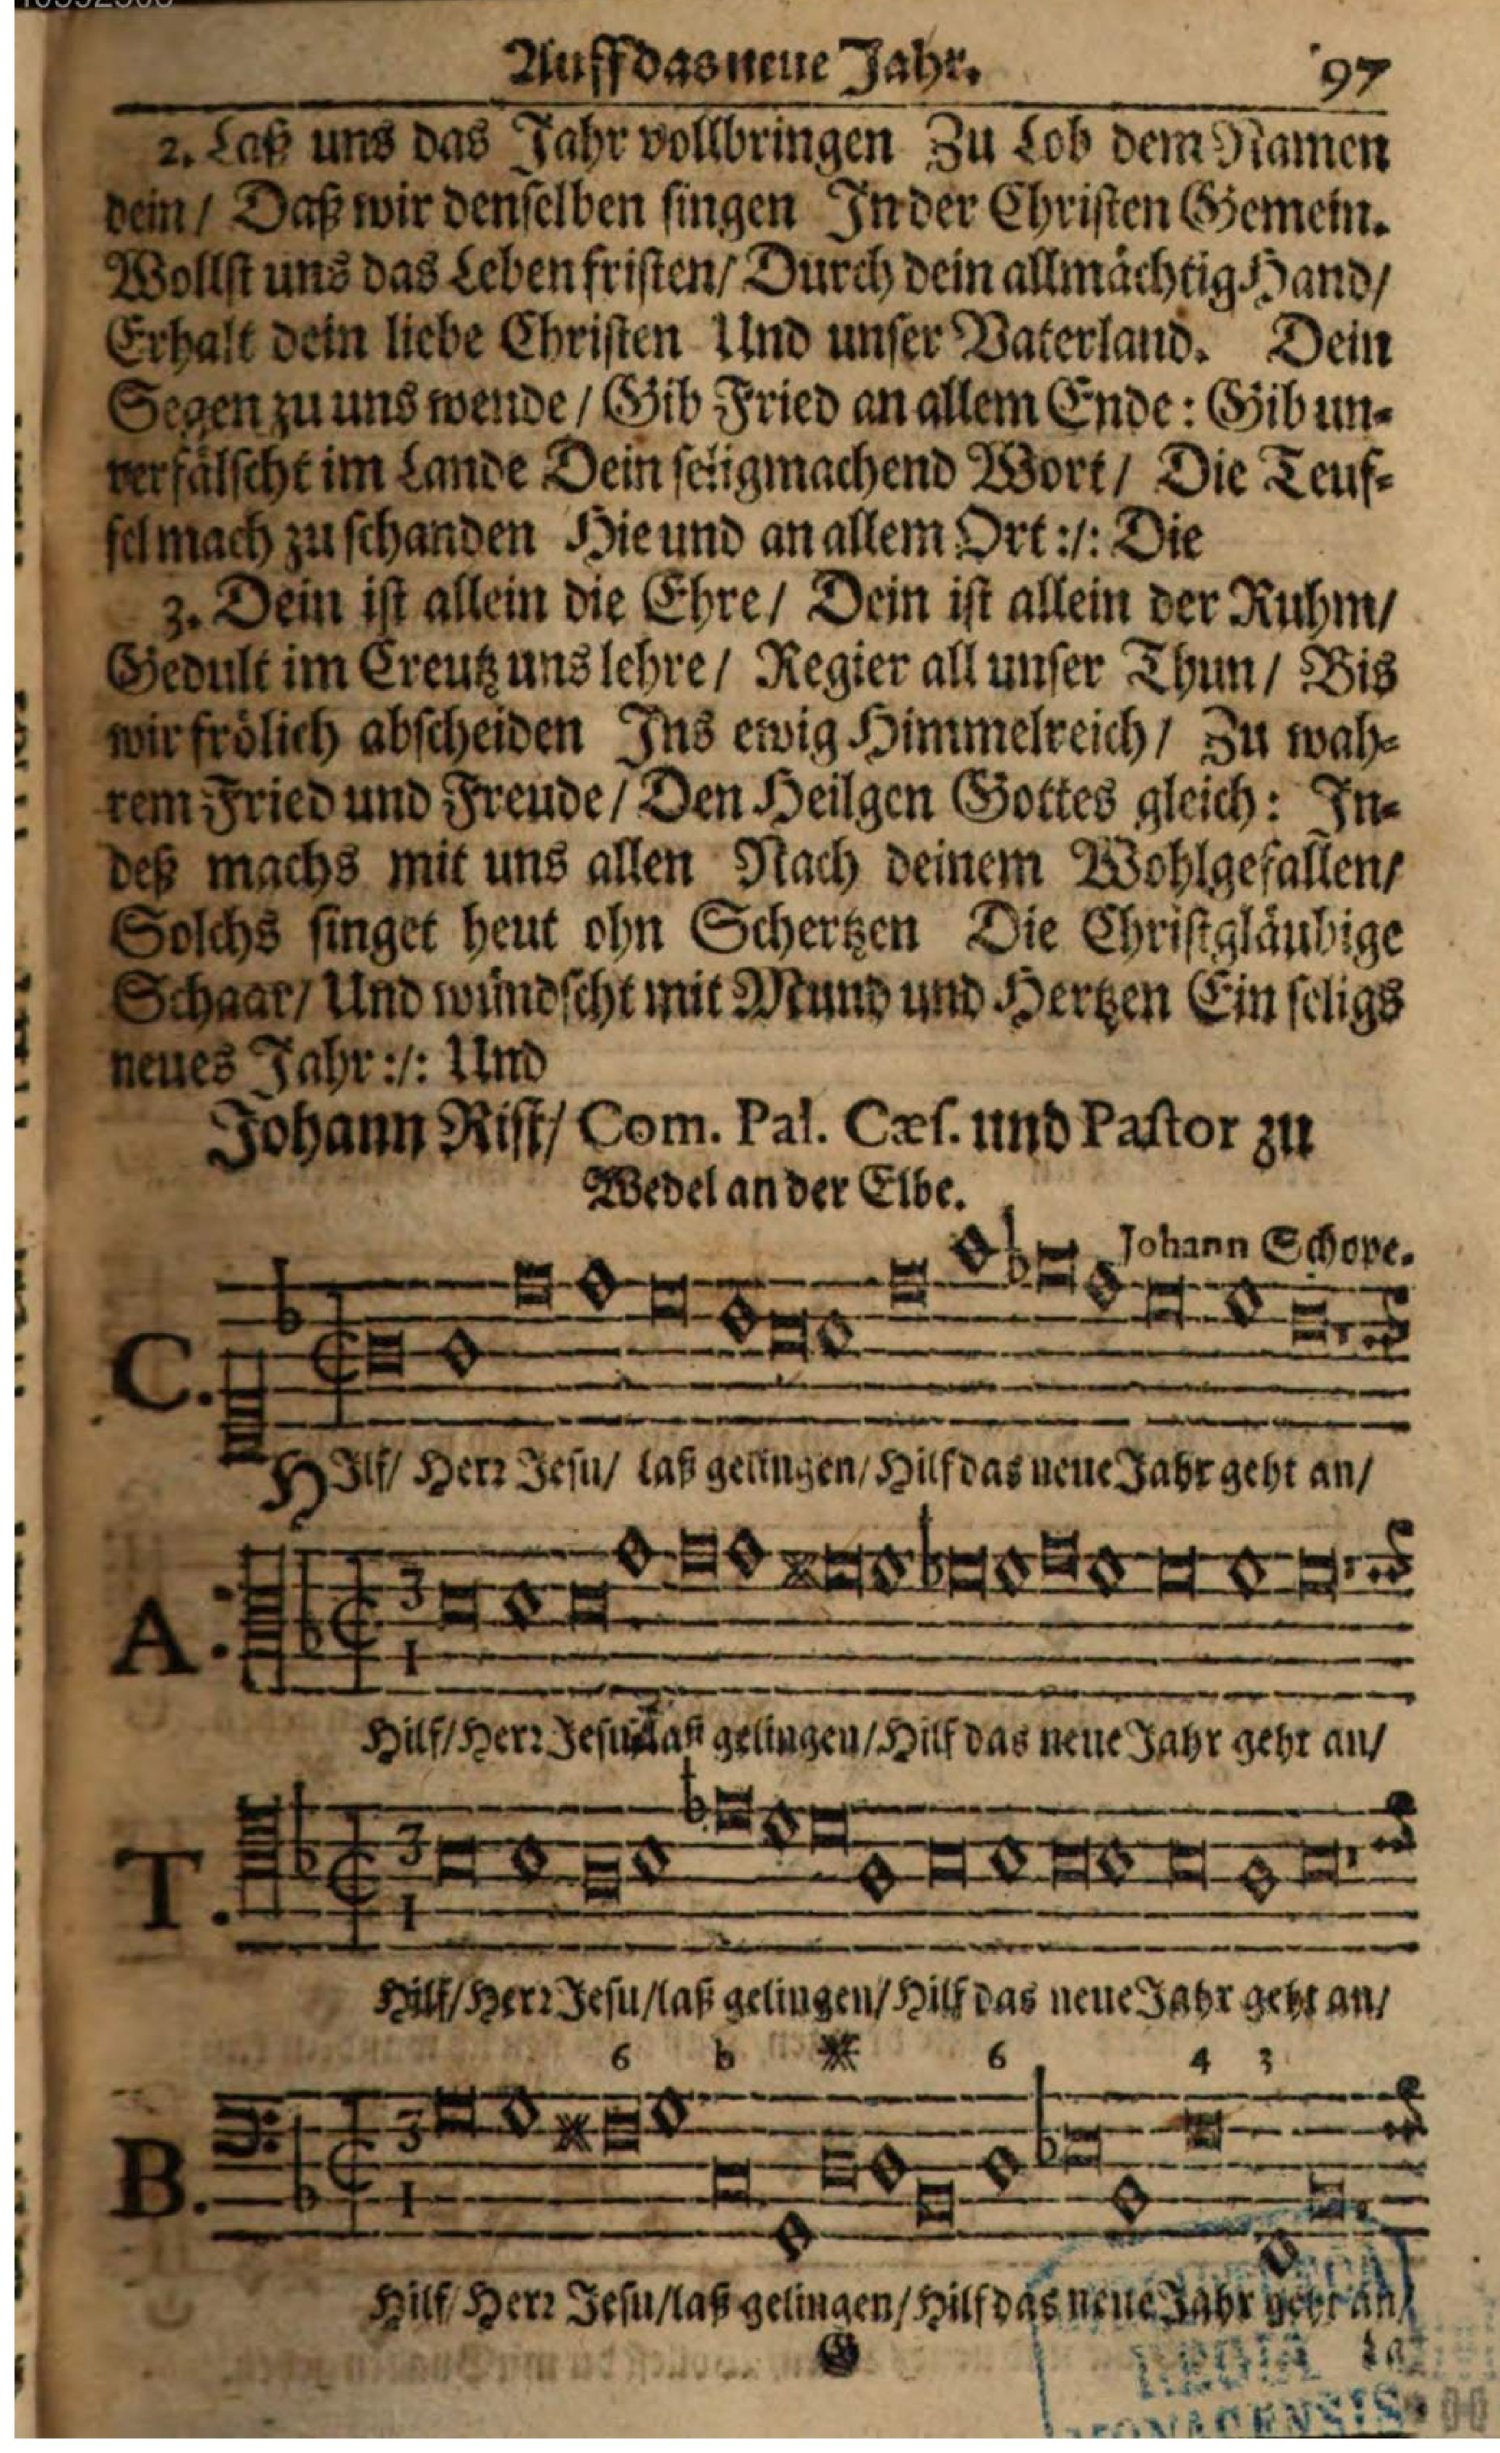 Auff das neue Jahr. 97
2. Laß uns das Jahr vollbringen Zu Lob dem Namen
dein / Daß wir denselben singen In der Christen Gemein.
Wollst uns das Leben fristen / Durch dein allmächtig Hand /
Erhalt dein liebe Christen Und unser Vaterland. Dein
Segen zu uns wende / Gib Fried an allem Ende: Gib un-
verfälscht im Lande Dein seligmachend Wort / Die Teuf-
fel mach zu schanden Hie und an allem Ort :/: Die
3. Dein ist allein die Ehre / Dein ist allein der Ruhm /
Gedult im Creutz uns lehre / Regier all unser Thun / Bis
wir frölich abscheiden Ins ewig Himmelreich / Zu wah-
rem Fried und Freude / Den Heilgen Gottes gleich: In-
deß machs mit uns allen Nach deinem Wohlgefallen /
Solchs singet heut ohn Schertzen Die Christgläubige
Schaar / Und wündscht mit Mund und Hertzen Ein seligs
neues Jahr :/: Und
Johann Rist / Com. Pal. Cæs. und Pastor zu
Wedel an der Elbe.
Johann Schope.
C.
HIlf / Herr Jesu / laß gelingen / Hilf das neue Jahr geht an /
A.
3
1
Hilf / Herr Jesu laß gelingen / Hilf das neue Jahr geht an /
T.
3
1
Hilf / Herr Jesu / laß gelingen / Hilf das neue Jahr geht an /
6 b 6 4 3
B.
3
1
Hilf / Herr Jesu / laß gelingen / Hilf das neue Jahr geht an /
G
La